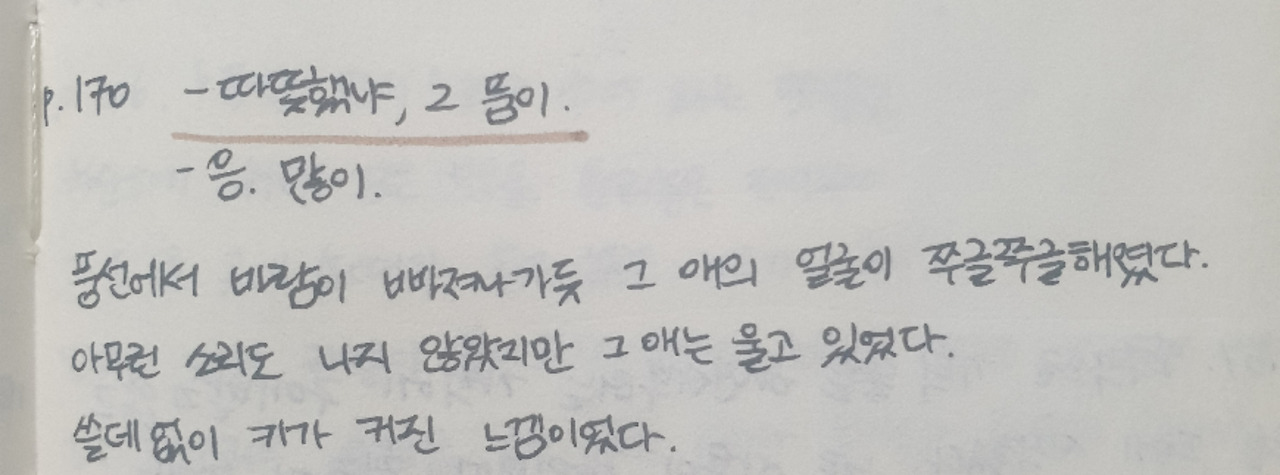 p.170 - 따뜻했냐, 그 품이.
- 응. 많이.
풍선에서 바람이 빠져나가듯 그 애의 얼굴이 쭈글쭈글해졌다.
아무런 소리도 나지 않았지만 그 애는 울고 있었다.
쓸데없이 키가 커진 느낌이었다.